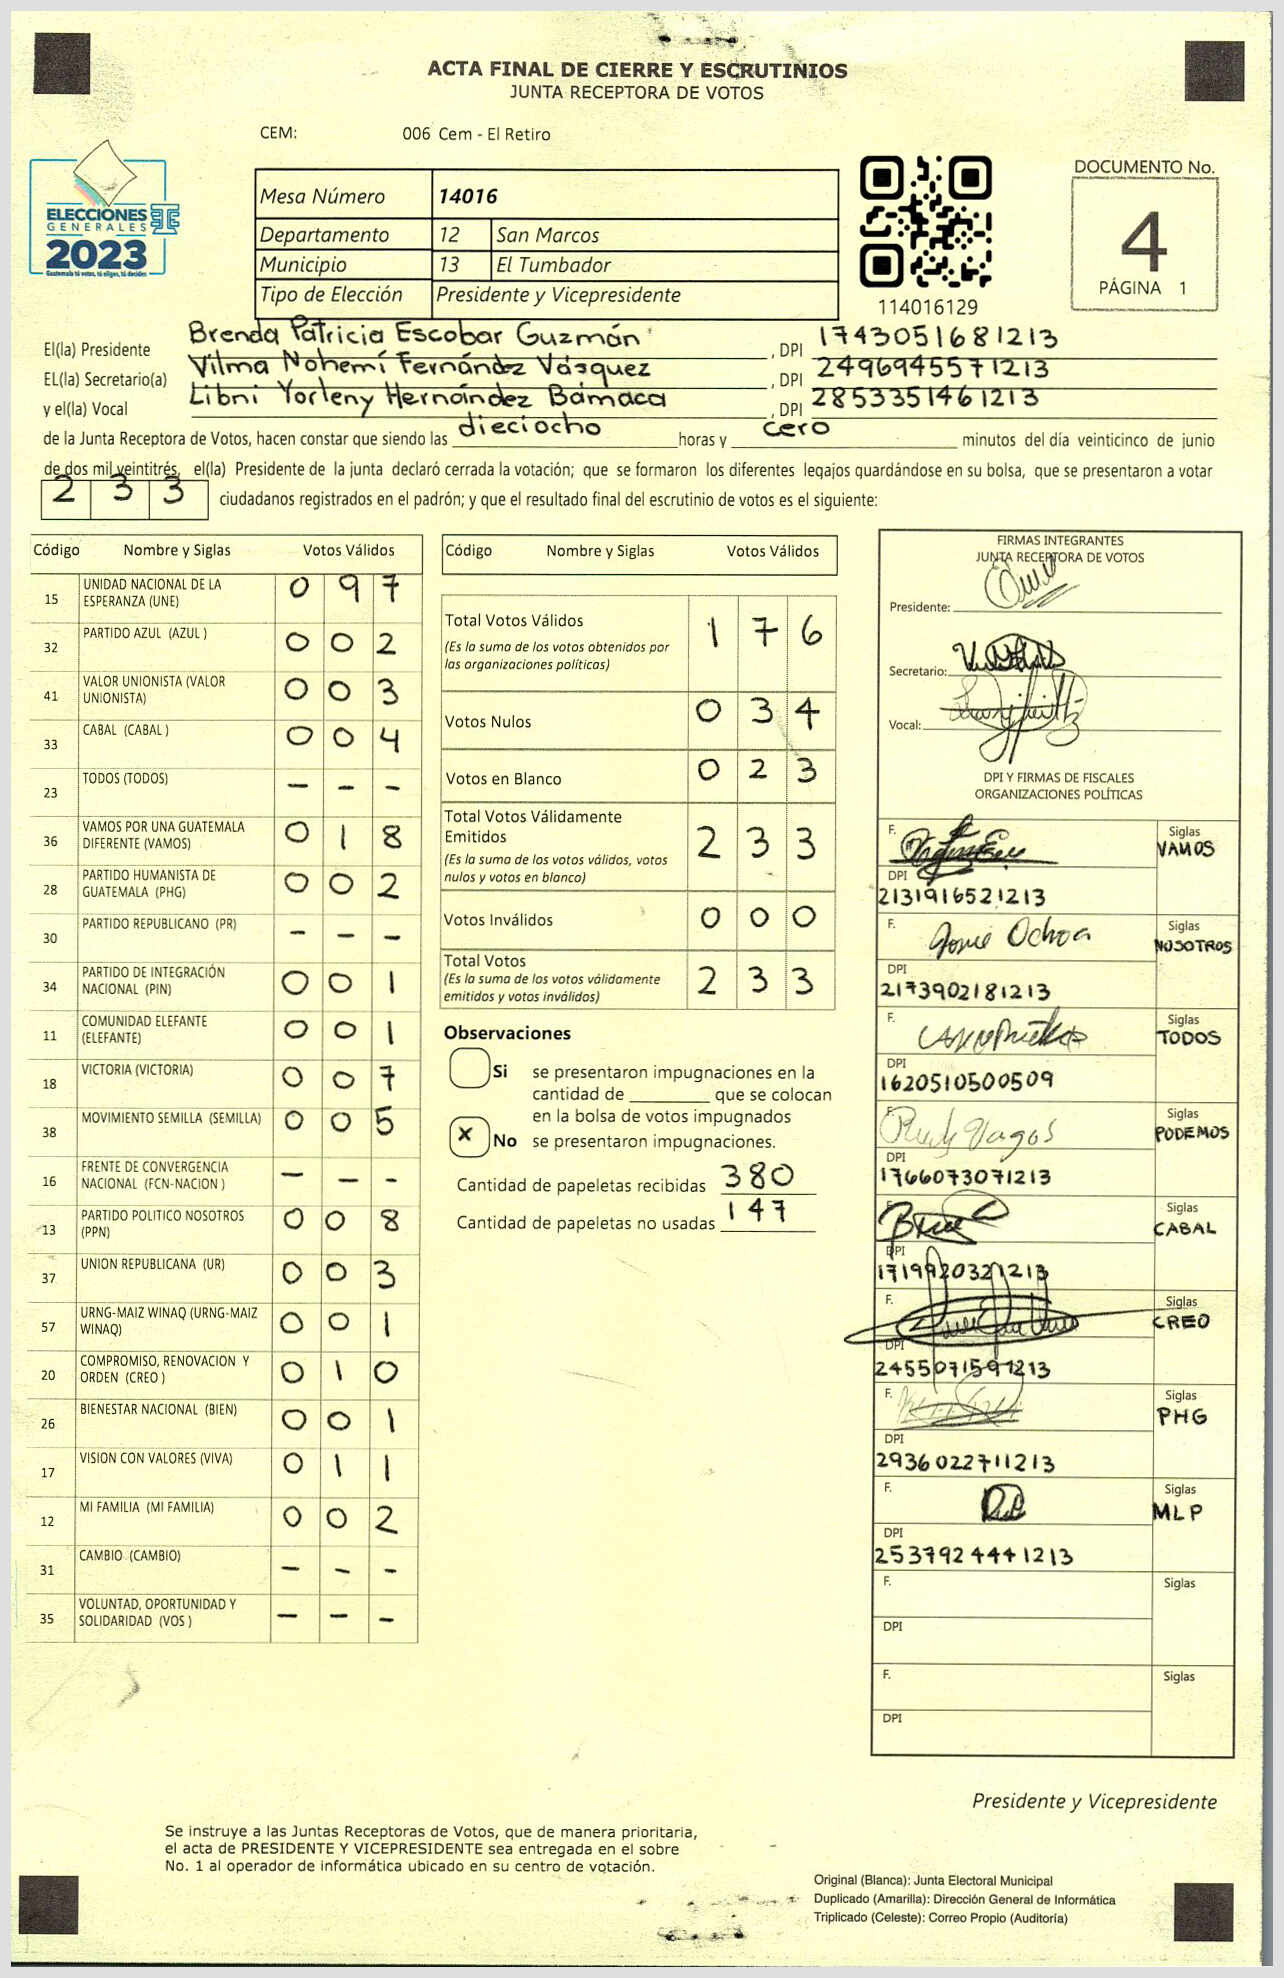 ACTA FINAL DE CIERRE Y ESCRUTINIOS
JUNTA RECEPTORA DE VOTOS
CEM: 006 Cem - El Retiro
ELECCIONES
GENERALES
2023
Guatemala tú votas, tú eliges, tú decides
Mesa Número 14016
Departamento 12 San Marcos
Municipio 13 El Tumbador
Tipo de Elección Presidente y Vicepresidente
114016129
DOCUMENTO No.
4
PÁGINA 1
El(la) Presidente Brenda Patricia Escobar Guzmán, DPI 1743051681213
EL(la) Secretario(a) Vilma Nohemí Fernández Vásquez, DPI 2496945571213
y el(la) Vocal Libni Yorleny Hernández Bámaca, DPI 2853351461213
de la Junta Receptora de Votos, hacen constar que siendo las dieciocho horas y cero minutos del día veinticinco de junio
de dos mil veintitrés, el(la) Presidente de la junta declaró cerrada la votación; que se formaron los diferentes legajos guardándose en su bolsa, que se presentaron a votar
233 ciudadanos registrados en el padrón; y que el resultado final del escrutinio de votos es el siguiente:
Código Nombre y Siglas Votos Válidos
15 UNIDAD NACIONAL DE LA ESPERANZA (UNE) 0 9 7
32 PARTIDO AZUL (AZUL ) 0 0 2
41 VALOR UNIONISTA (VALOR UNIONISTA) 0 0 3
33 CABAL (CABAL ) 0 0 4
23 TODOS (TODOS) - - -
36 VAMOS POR UNA GUATEMALA DIFERENTE (VAMOS) 0 1 8
28 PARTIDO HUMANISTA DE GUATEMALA (PHG) 0 0 2
30 PARTIDO REPUBLICANO (PR) - - -
34 PARTIDO DE INTEGRACIÓN NACIONAL (PIN) 0 0 1
11 COMUNIDAD ELEFANTE (ELEFANTE) 0 0 1
18 VICTORIA (VICTORIA) 0 0 7
38 MOVIMIENTO SEMILLA (SEMILLA) 0 0 5
16 FRENTE DE CONVERGENCIA NACIONAL (FCN-NACION ) - - -
13 PARTIDO POLITICO NOSOTROS (PPN) 0 0 8
37 UNION REPUBLICANA (UR) 0 0 3
57 URNG-MAIZ WINAQ (URNG-MAIZ WINAQ) 0 0 1
20 COMPROMISO, RENOVACION Y ORDEN (CREO ) 0 1 0
26 BIENESTAR NACIONAL (BIEN) 0 0 1
17 VISION CON VALORES (VIVA) 0 1 1
12 MI FAMILIA (MI FAMILIA) 0 0 2
31 CAMBIO (CAMBIO) - - -
35 VOLUNTAD, OPORTUNIDAD Y SOLIDARIDAD (VOS ) - - -
Código Nombre y Siglas Votos Válidos
Total Votos Válidos 1 7 6
(Es la suma de los votos obtenidos por
las organizaciones políticas)
Votos Nulos 0 3 4
Votos en Blanco 0 2 3
Total Votos Válidamente
Emitidos 2 3 3
(Es la suma de los votos válidos, votos
nulos y votos en blanco)
Votos Inválidos 0 0 0
Total Votos 2 3 3
(Es la suma de los votos válidamente
emitidos y votos inválidos)
Observaciones
Si se presentaron impugnaciones en la
cantidad de ________ que se colocan
en la bolsa de votos impugnados
X No se presentaron impugnaciones.
Cantidad de papeletas recibidas 380
Cantidad de papeletas no usadas 147
FIRMAS INTEGRANTES
JUNTA RECEPTORA DE VOTOS
Presidente:
Secretario:
Vocal:
DPI Y FIRMAS DE FISCALES
ORGANIZACIONES POLÍTICAS
F. Siglas VAMOS
DPI 2131916521213
F. Ochoa Siglas NOSOTROS
DPI 2173902181213
F. Siglas TODOS
DPI 1620510500509
F. Siglas PODEMOS
DPI 1766073071213
F. Siglas CABAL
DPI 1719920321213
F. Siglas CREO
DPI 2455071591213
F. Siglas PHG
DPI 2936022711213
F. Siglas MLP
DPI 2537924441213
F. Siglas
DPI
F. Siglas
DPI
Presidente y Vicepresidente
Se instruye a las Juntas Receptoras de Votos, que de manera prioritaria,
el acta de PRESIDENTE Y VICEPRESIDENTE sea entregada en el sobre
No. 1 al operador de informática ubicado en su centro de votación.
Original (Blanca): Junta Electoral Municipal
Duplicado (Amarilla): Dirección General de Informática
Triplicado (Celeste): Correo Propio (Auditoría)